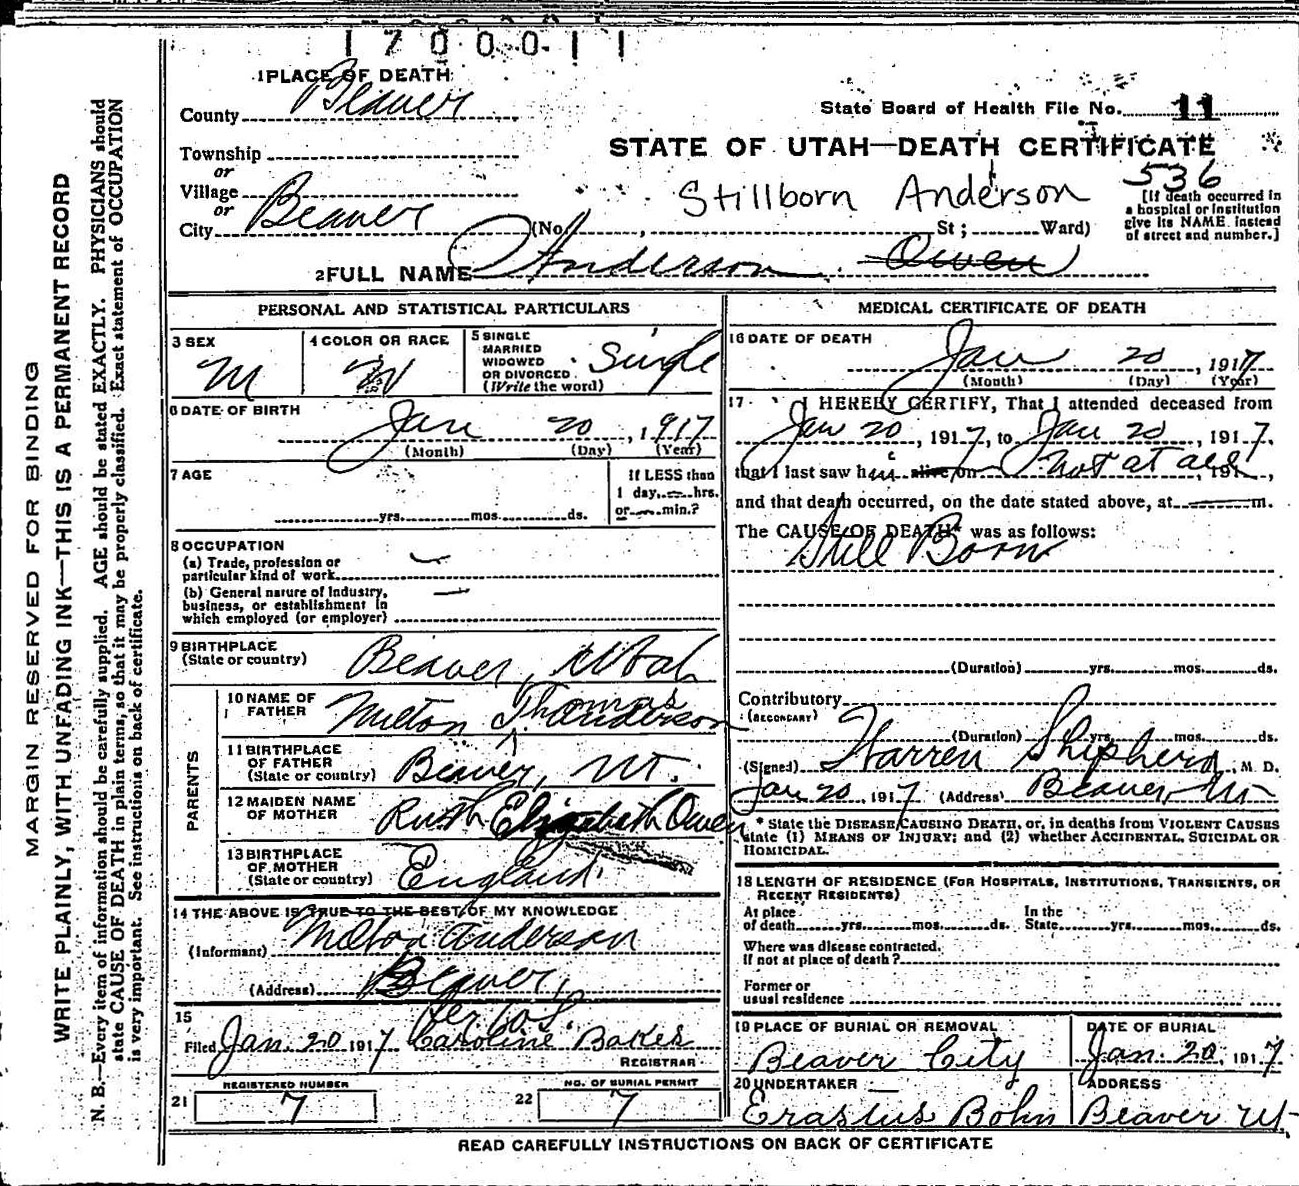 1700011
1 PLACE OF DEATH
County Beaver
State Board of Health File No. 11
Township
or
Village
or
City Beaver
STATE OF UTAH—DEATH CERTIFICATE
536
Stillborn Anderson
(No. , St; Ward)
[If death occurred in
a hospital or institution
give its NAME instead
of street and number.]
2 FULL NAME Anderson Owen
PERSONAL AND STATISTICAL PARTICULARS
3 SEX
M
4 COLOR OR RACE
W
5 SINGLE
MARRIED
WIDOWED
OR DIVORCED
(Write the word)
Single
6 DATE OF BIRTH
Jan 20, 1917
(Month) (Day) (Year)
7 AGE
yrs. mos. ds.
If LESS than
1 day, hrs.
or min.?
8 OCCUPATION
(a) Trade, profession or
particular kind of work
(b) General nature of Industry,
business, or establishment in
which employed (or employer)
9 BIRTHPLACE
(State or country)
Beaver, Utah
PARENTS
10 NAME OF
FATHER
Milton Thomas Anderson
11 BIRTHPLACE
OF FATHER
(State or country)
Beaver, Ut.
12 MAIDEN NAME
OF MOTHER
Ruth Elizabeth Owen
13 BIRTHPLACE
OF MOTHER
(State or country)
England.
14 THE ABOVE IS TRUE TO THE BEST OF MY KNOWLEDGE
(Informant) Milton Anderson
(Address) Beaver,
15
Filed Jan. 20 1917 Caroline Bakes
REGISTRAR
21
REGISTERED NUMBER
7
22
NO. OF BURIAL PERMIT
7
MEDICAL CERTIFICATE OF DEATH
16 DATE OF DEATH
Jan 20, 1917
(Month) (Day) (Year)
17 I HEREBY CERTIFY, That I attended deceased from
Jan 20, 1917, to Jan 20, 1917,
that I last saw him alive on not at all, 191 ,
and that death occurred, on the date stated above, at m.
The CAUSE OF DEATH* was as follows:
Still Born
(Duration) yrs. mos. ds.
Contributory
(SECONDARY)
(Duration) yrs. mos. ds.
(Signed) Warren Shepherd, M. D.
Jan 20, 1917 (Address) Beaver Ut
* State the DISEASE CAUSING DEATH, or, in deaths from VIOLENT CAUSES
state (1) MEANS OF INJURY; and (2) whether ACCIDENTAL, SUICIDAL OR
HOMICIDAL.
18 LENGTH OF RESIDENCE (FOR HOSPITALS, INSTITUTIONS, TRANSIENTS, OR
RECENT RESIDENTS)
At place
of death yrs. mos. ds.
In the
State yrs. mos. ds.
Where was disease contracted.
If not at place of death?
Former or
usual residence
19 PLACE OF BURIAL OR REMOVAL
Beaver City
DATE OF BURIAL
Jan. 20, 1917
20 UNDERTAKER
Erastus Bohn
ADDRESS
Beaver Ut.
READ CAREFULLY INSTRUCTIONS ON BACK OF CERTIFICATE
MARGIN RESERVED FOR BINDING
WRITE PLAINLY, WITH UNFADING INK—THIS IS A PERMANENT RECORD
N. B.—Every item of information should be carefully supplied. AGE should be stated EXACTLY. PHYSICIANS should
state CAUSE OF DEATH in plain terms, so that it may be properly classified. Exact statement of OCCUPATION
is very important. See instructions on back of certificate.